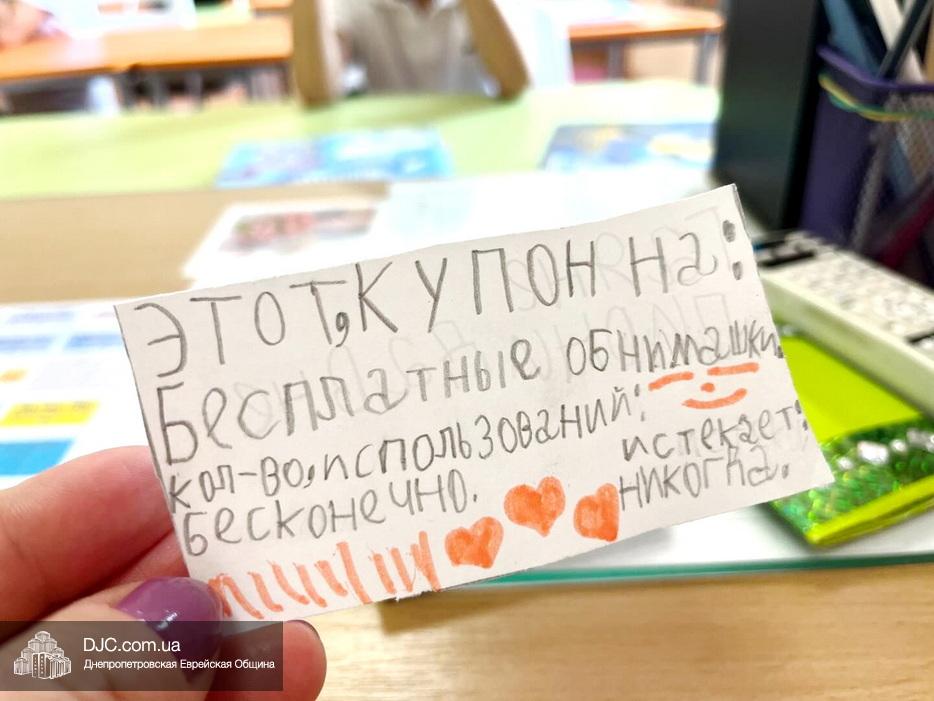 ЭТОТ,КУПОН На:
Бесплатные обнимашки.
кол-во,использований:
бесконечно.
истекает:
никогда.
DJC.com.ua
Днепропетровская Еврейская Община